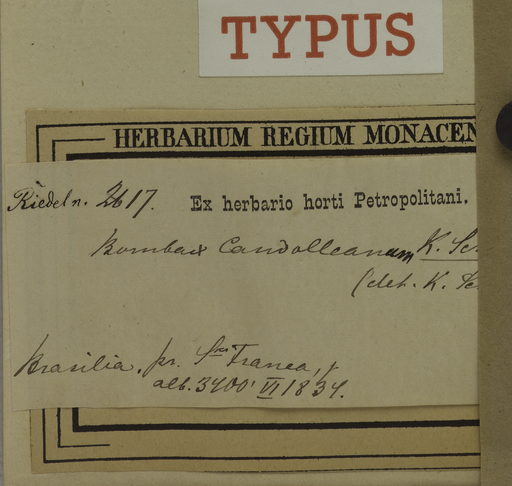 TYPUS
HERBARIUM REGIUM MONACEN
Riedel n. 2617. Ex herbario horti Petropolitani.
Bombax Candolleanum K. Sc
(det. K. Sc
Brasilia, pr.
alt. 3400' VI 1834.